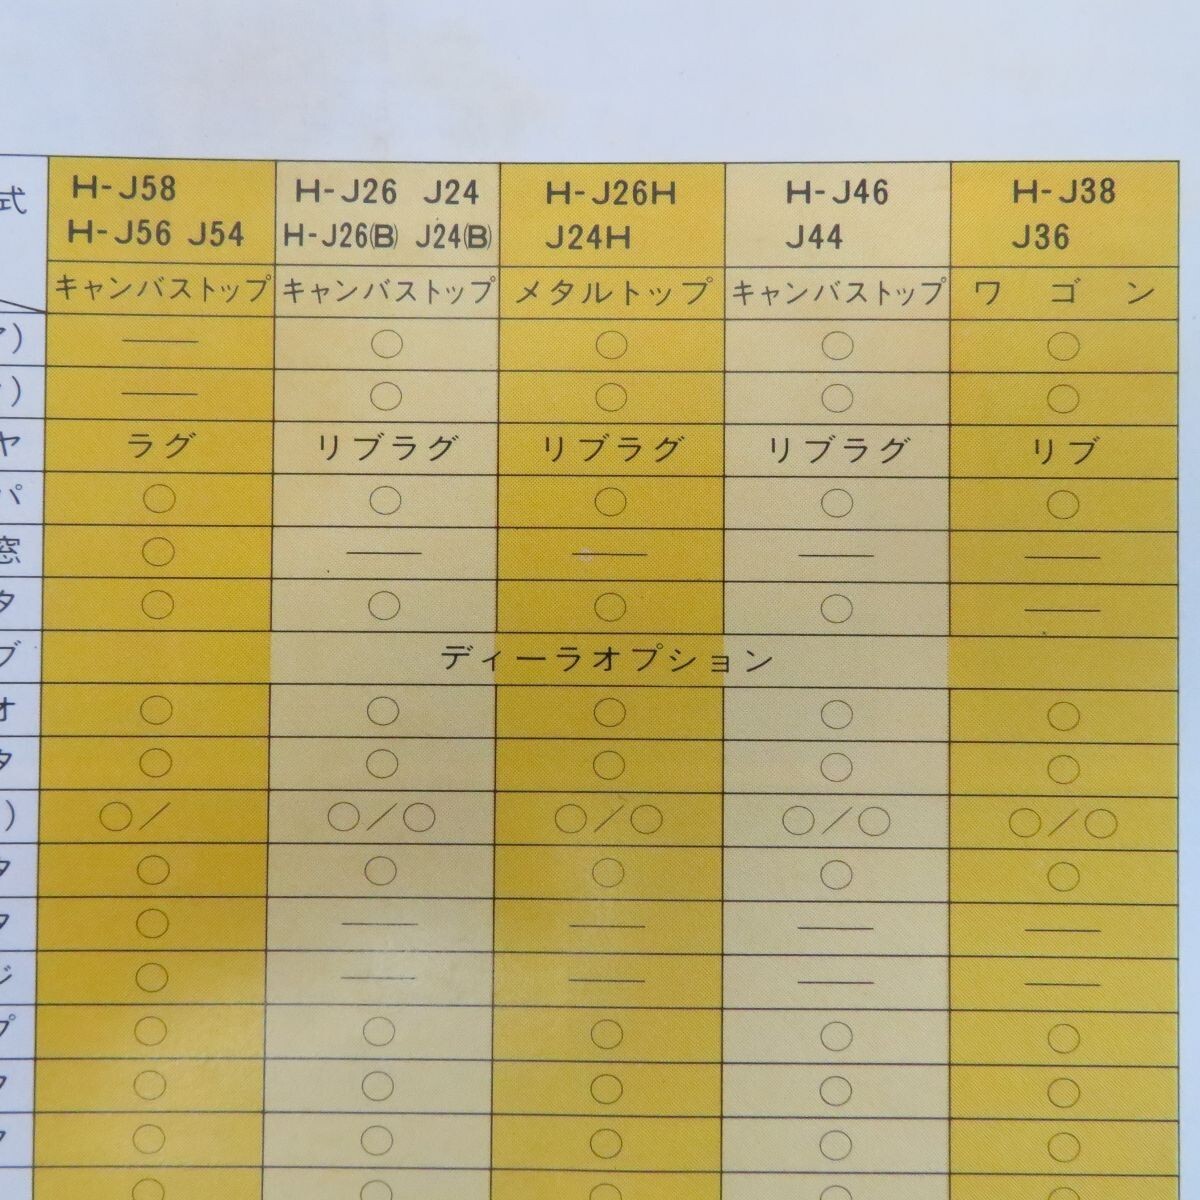 式
H-J58
H-J56 J54
H-J26 J24
H-J26(B) J24(B)
H-J26H
J24H
H-J46
J44
H-J38
J36
キャンバストップ
キャンバストップ
メタルトップ
キャンバストップ
ワゴン
ア) — ○ ○ ○ ○
) — ○ ○ ○ ○
ヤ ラグ リブラグ リブラグ リブラグ リブ
パ ○ ○ ○ ○ ○
窓 ○ — — — —
タ ○ ○ ○ ○ —
ブ ディーラオプション
オ ○ ○ ○ ○ ○
タ ○ ○ ○ ○ ○
) ○/ ○/○ ○/○ ○/○ ○/○
タ ○ ○ ○ ○ ○
タ ○ — — — —
ジ ○ — — — —
プ ○ ○ ○ ○ ○
○ ○ ○ ○ ○
○ ○ ○ ○ ○
○ ○ ○ ○ ○